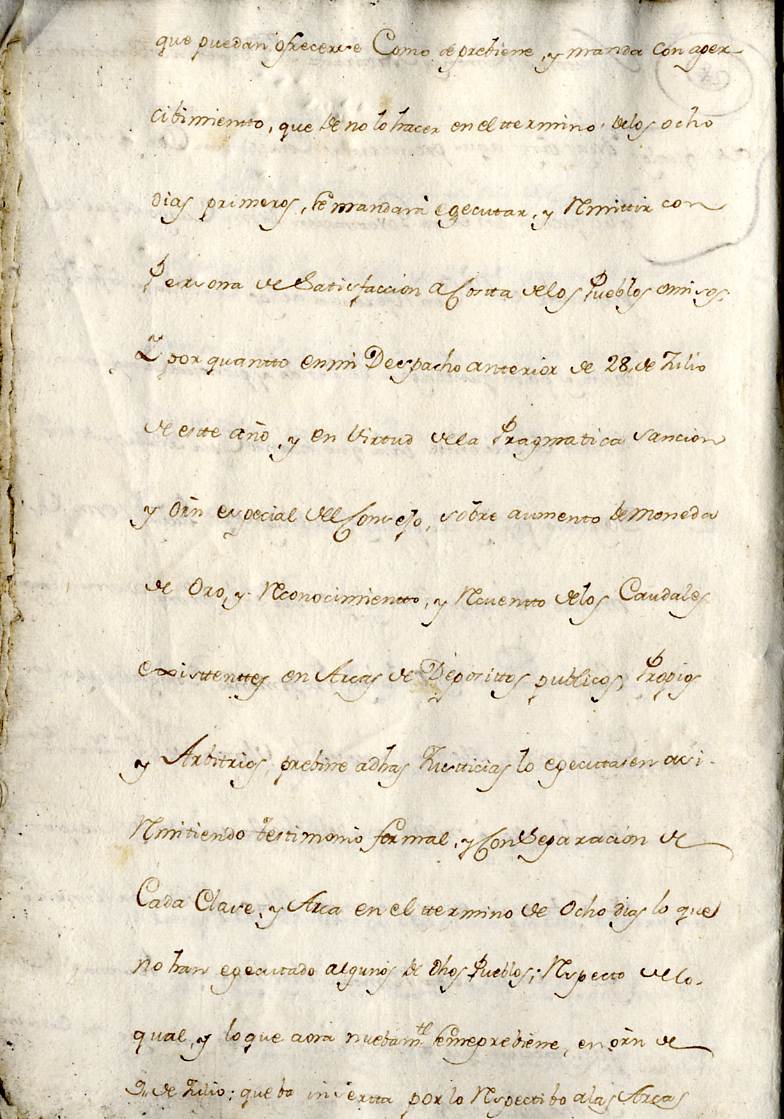 que puedan ofrecerse Como se prebiene, y manda con aper-
cibimientto, que de no lo hacer en el ttermino delos ocho
dias primeros, se mandará egecutar, y Remittir con
Persona de Satisfaccion a Costta delos Pueblos omisos.
Y por quantto en mi Despacho anterior de 28, de Julio
de estte año, y en Virtud dela Pragmatica Sancion
y orn especial del Consejo, sobre aumento de moneda
de Oro, y Reconocimientto, y Recuentto delos Caudales
existtenttes en Arcas de Depositos publicos, Propios
y Arbitrios, prebine a dhas Justticias lo egecutasen asi.
Remitiendo testimonio formal, y Con Separacion de
Cada Clase, y Arca en el ttermino de Ocho dias lo que
no han egecutado algunos de dhos Pueblos; Respecto delo-
qual, y lo que aora nuebamte se me prebiene, en orn de
de Julio: que ba insertta por lo Respectibo a las Arcas